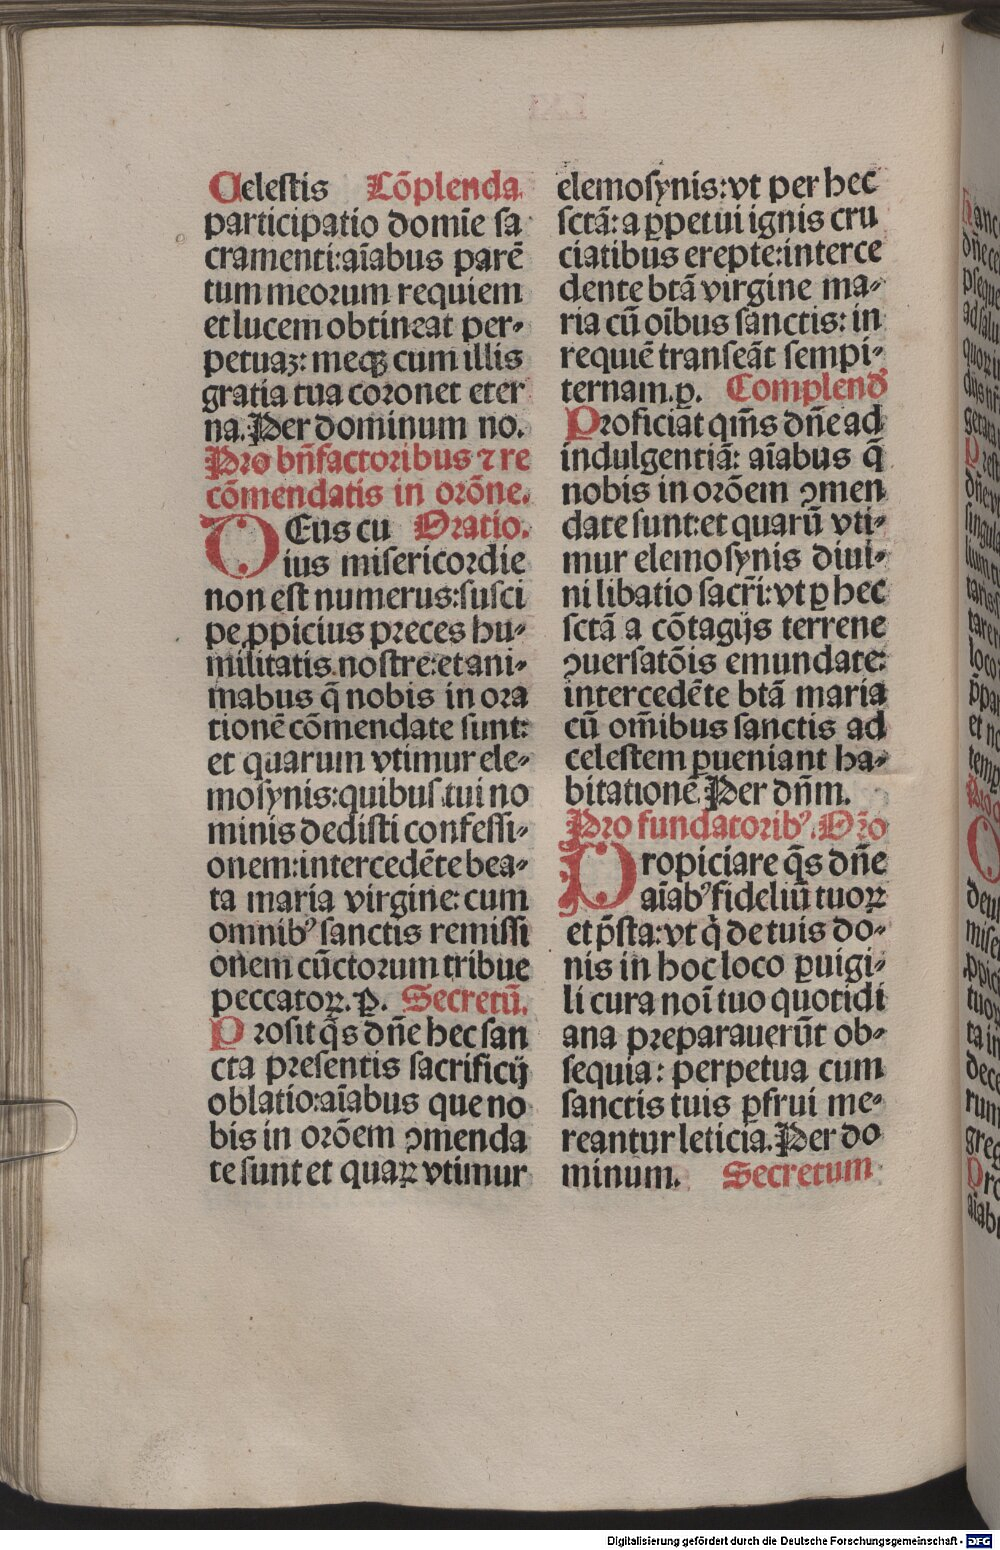 Celestis Cōplenda
participatio domīe sa
cramenti:aīabus parē
tum meoꝛum requiem
et lucem obtineat per⸗
petuaꝫ: meqꝫ cum illis
gratia tua coꝛonet eter
na. Per dominum no.
Pro bn̄factoribus ⁊ re
cōmendatis in orōne.
DEus cu Oratio.
ius misericoꝛdie
non est numerus:susci
pe ꝓpicius pꝛeces hu⸗
militatis nostre:et ani⸗
mabus q̄ nobis in oꝛa
tionē cōmendate sunt:
et quarum vtimur ele⸗
mosynis:quibus tui no
minis dedisti confessi⸗
onem:intercedēte bea⸗
ta maria virgine: cum
omnibꝰ sanctis remissi
onem cūctoꝛum tribue
peccatoꝝ. ꝑ. Secretū.
Prosit q̄s dn̄e hec san
cta pꝛesentis sacrificij
oblatio:aīabus que no
bis in oꝛōem ꝯmenda
te sunt et quaꝝ vtimur
elemosynis:vt per hec
sctā: a ꝑpetui ignis cru
ciatibus erepte:interce
dente btā virgine ma⸗
ria cū oībus sanctis: in
requiē transeāt sempi⸗
ternam.ꝑ. Complend̕
Proficiāt qm̄s dn̄e ad
indulgentiā: aīabus q̄
nobis in oꝛōem ꝯmen
date sunt:et quarū vti⸗
mur elemosynis diui⸗
ni libatio sacr̄i:vt ꝑ hec
sctā a cōtagijs terrene
ꝯuersatōis emundate:
intercedēte btā maria
cū om̄ibus sanctis ad
celestem ꝑueniant ha⸗
bitationē. Per dn̄m.
Pro fundatoribꝰ. Or̄o
PRopiciare q̄s dn̄e
aīabꝰ fideliū tuoꝝ
et p̄sta:vt q̄ de tuis do⸗
nis in hoc loco ꝑuigi⸗
li cura noī tuo quotidi
ana pꝛeparauerūt ob⸗
sequia: perpetua cum
sanctis tuis ꝑfrui me⸗
reantur leticia. Per do
minum. Secretum
Digitalisierung gefördert durch die Deutsche Forschungsgemeinschaft - DFG